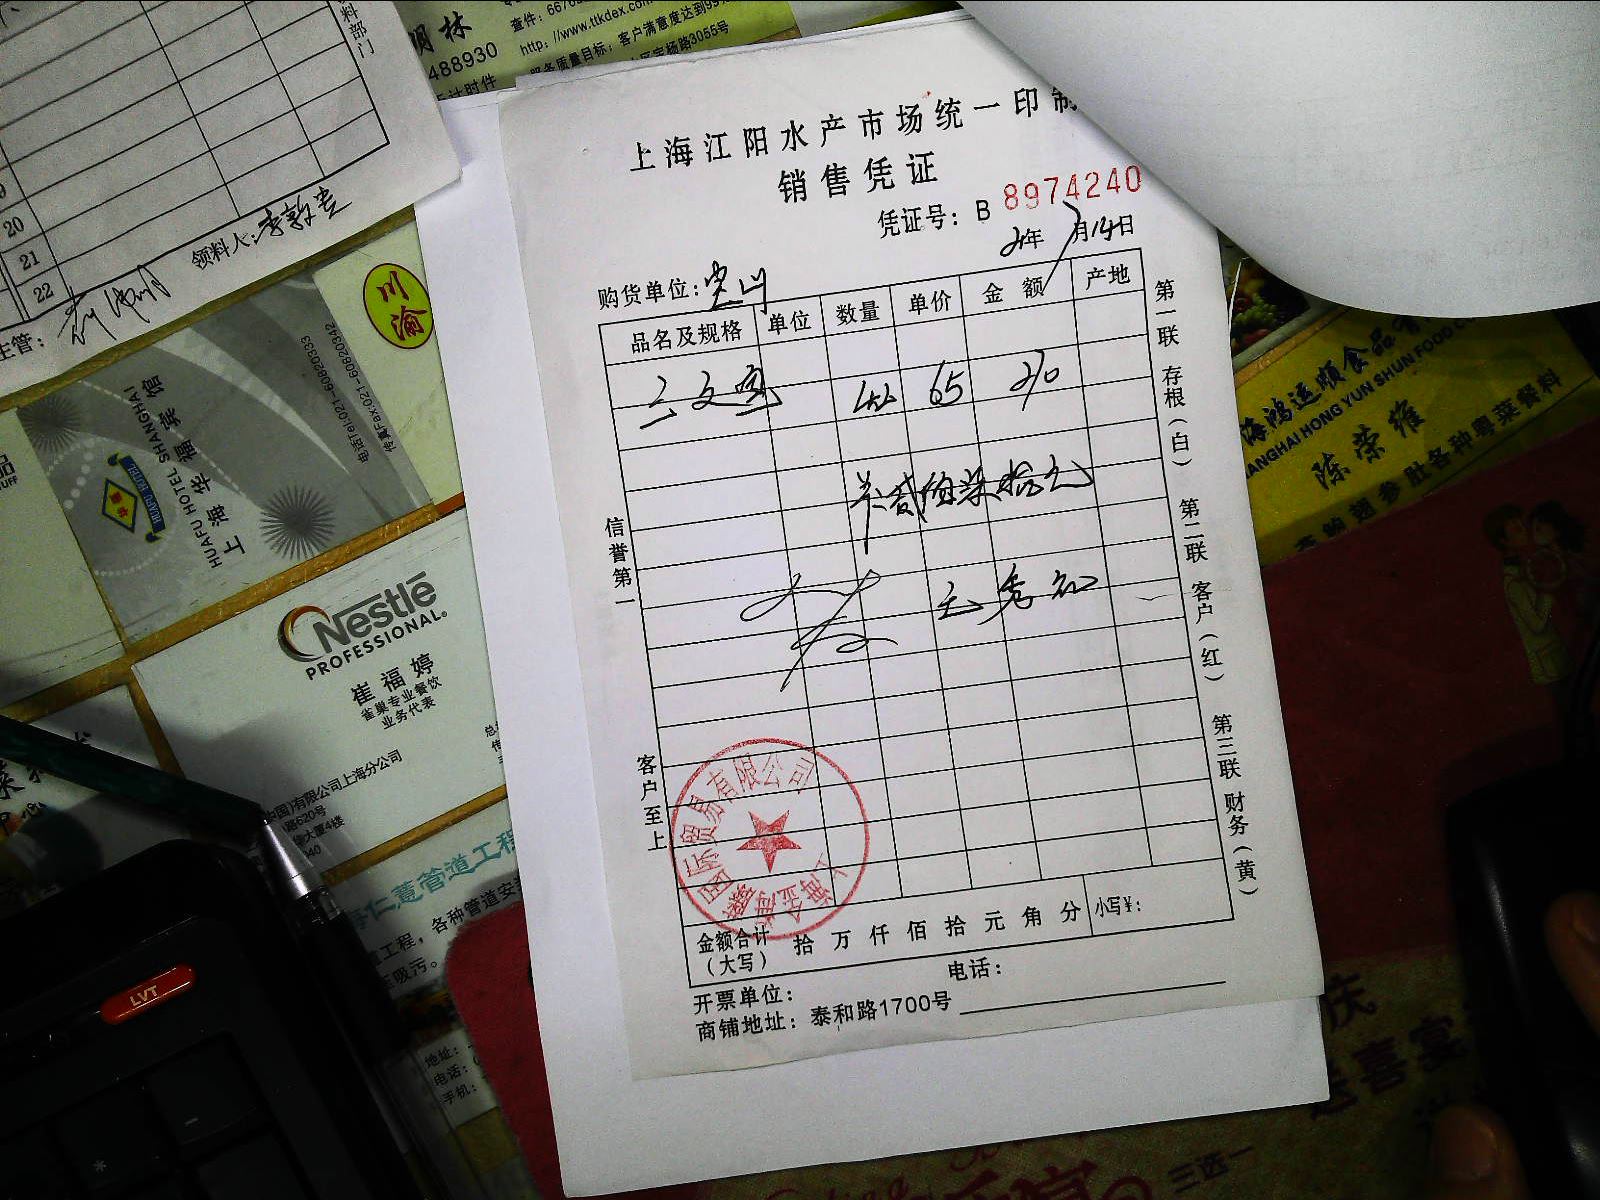 料部门
20
21
22
领料人:
主管:
明林
488930
http://www.ttkdex.com
服务质量目标:客户满意度达到99
3055号
川渝
上海华福宾馆
HUAFU HOTEL SHANGHAI
HUAFU HOTEL
电话Tel:021-60820333
传真Fax:021-60820342
Nestlé
PROFESSIONAL.
崔福婷
雀巢专业餐饮
业务代表
国)有限公司上海分公司
路620号
大厦4楼
040
仁薏管道工程
工程，各种管道安
吸污。
地址:
电话:
手机:
LVT
上海江阳水产市场统一印制
销售凭证
凭证号: B 8974240
年 7月14日
购货单位:
品名及规格 单位 数量 单价 金额 产地
三文鱼 65 270
贰佰柒拾元
信誉第一
客户至上
第一联 存根(白) 第二联 客户(红) 第三联 财务(黄)
国际贸易有限公司
金额合计(大写) 拾 万 仟 佰 拾 元 角 分 小写¥:
开票单位: 电话:
商铺地址: 泰和路1700号
海鸿运顺食品
ANGHAI HONG YUN SHUN FOOD CO
陈荣雍
鲍翅参肚各种粤菜餐料
庆
送喜宴
三选一